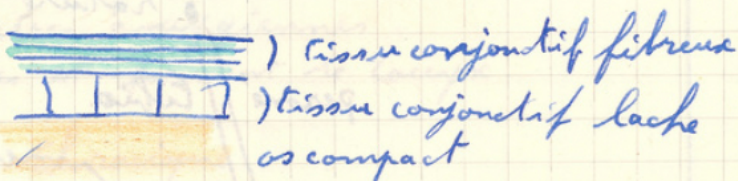 ) tissu conjonctif fibreux
) tissu conjonctif lache
os compact